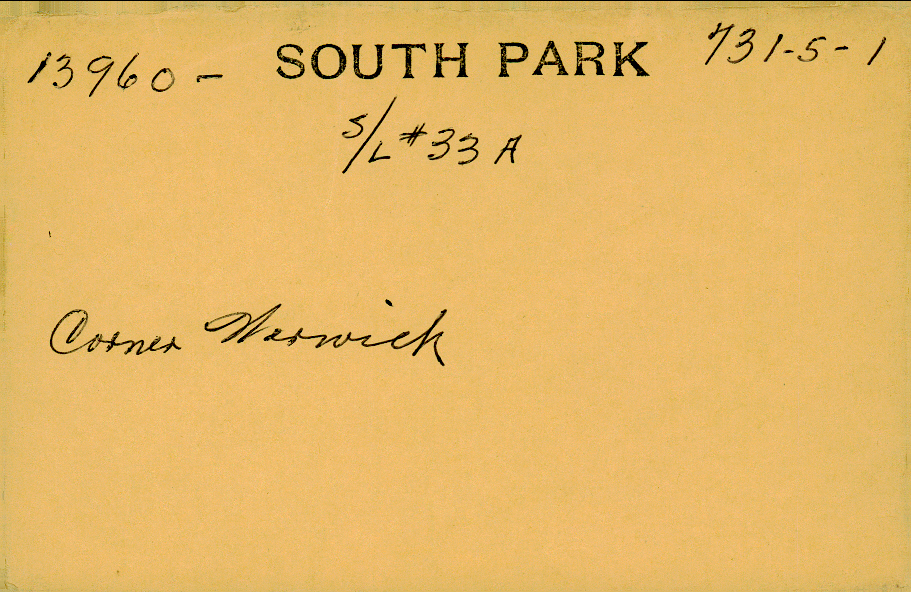 13960 - SOUTH PARK 731-5-1
S/L #33 A
Corner Warwick